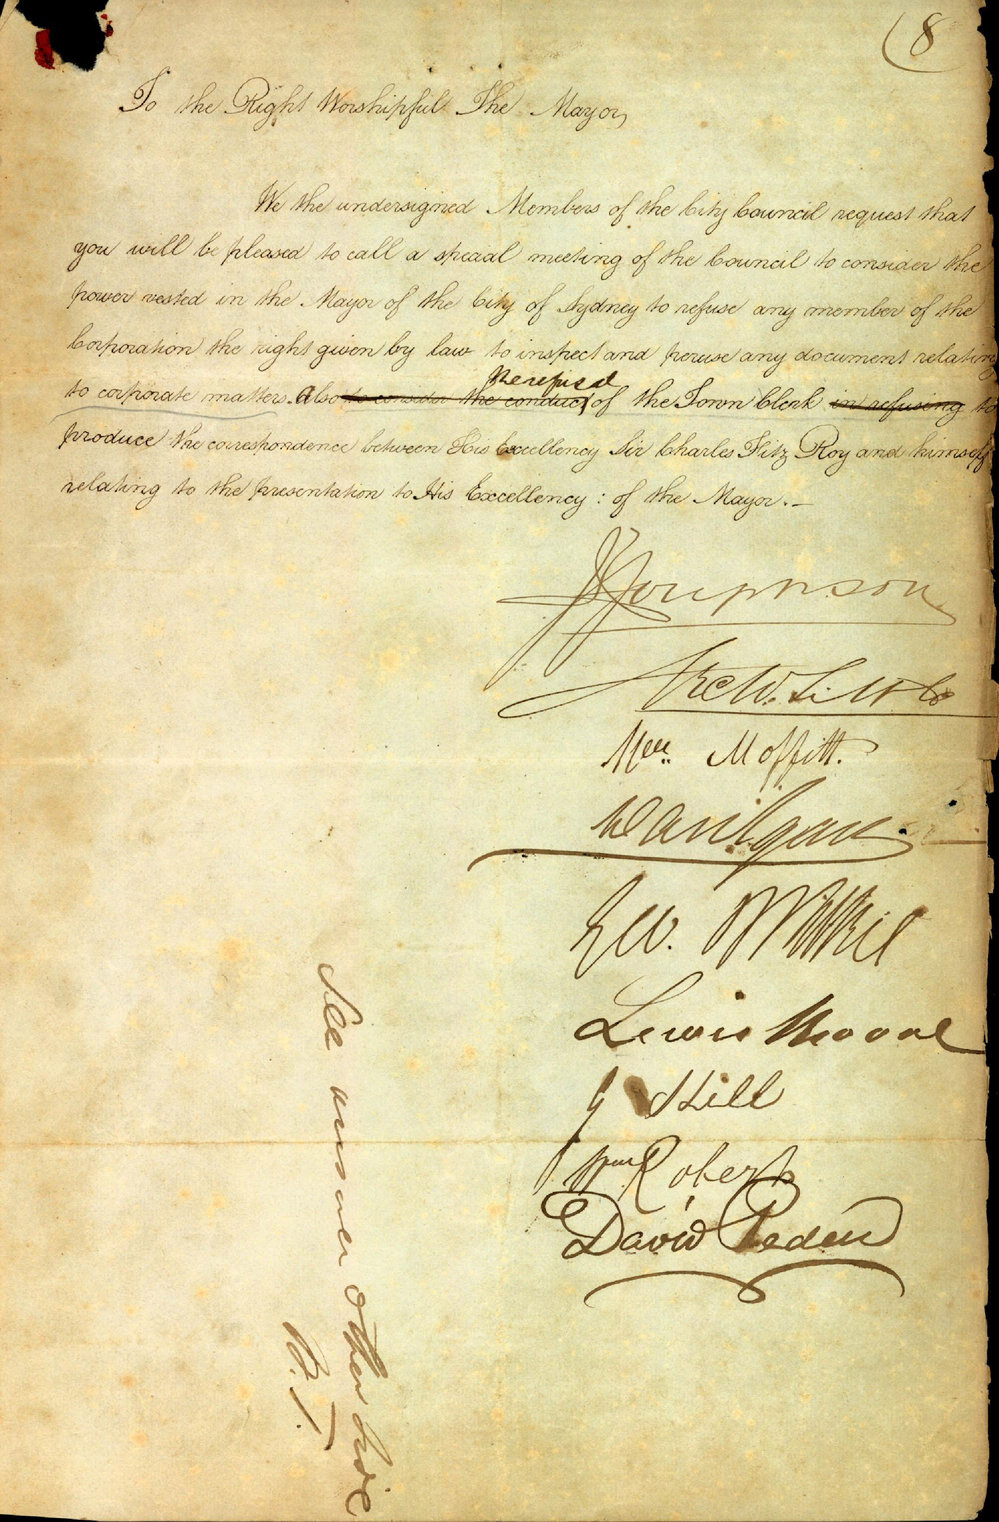 (8
To the Right Worshipful The Mayor,
We the undersigned Members of the City Council request that
you will be pleased to call a special meeting of the Council to consider the
power vested in the Mayor of the City of Sydney to refuse any member of the
Corporation the right given by law to inspect and peruse any document relating
the refusal
to corporate matters. Also to consider the conduct of the Town Clerk in refusing to
produce the correspondence between His Excellency Sir Charles Fitz Roy and himself
relating to the presentation to His Excellency : of the Mayor. —
Wm. Moffitt.
Dan Egan
Geo.
Lewis Moore
G Hill
Wm Roberts
David Peden
See answer other side
P.T.